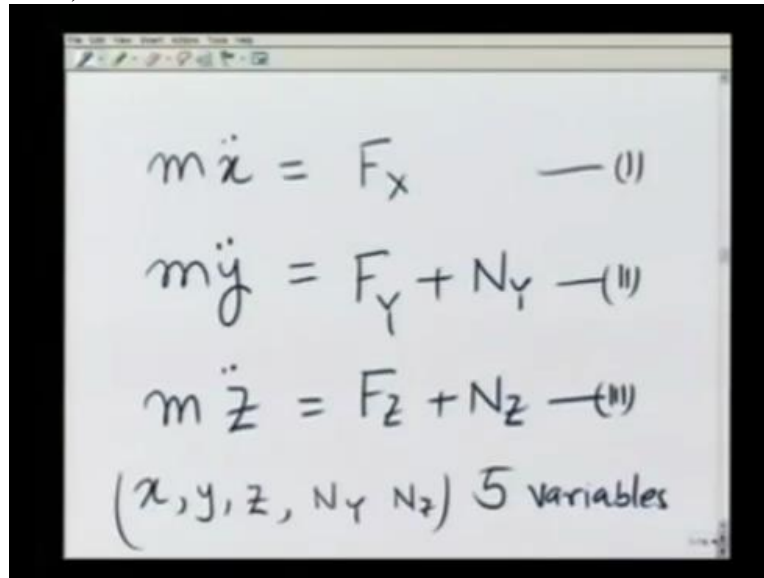 mẍ = F_X — (I)
mÿ = F_Y + N_Y — (II)
m z̈ = F_Z + N_Z — (III)
(x, y, z, N_Y N_Z) 5 variables